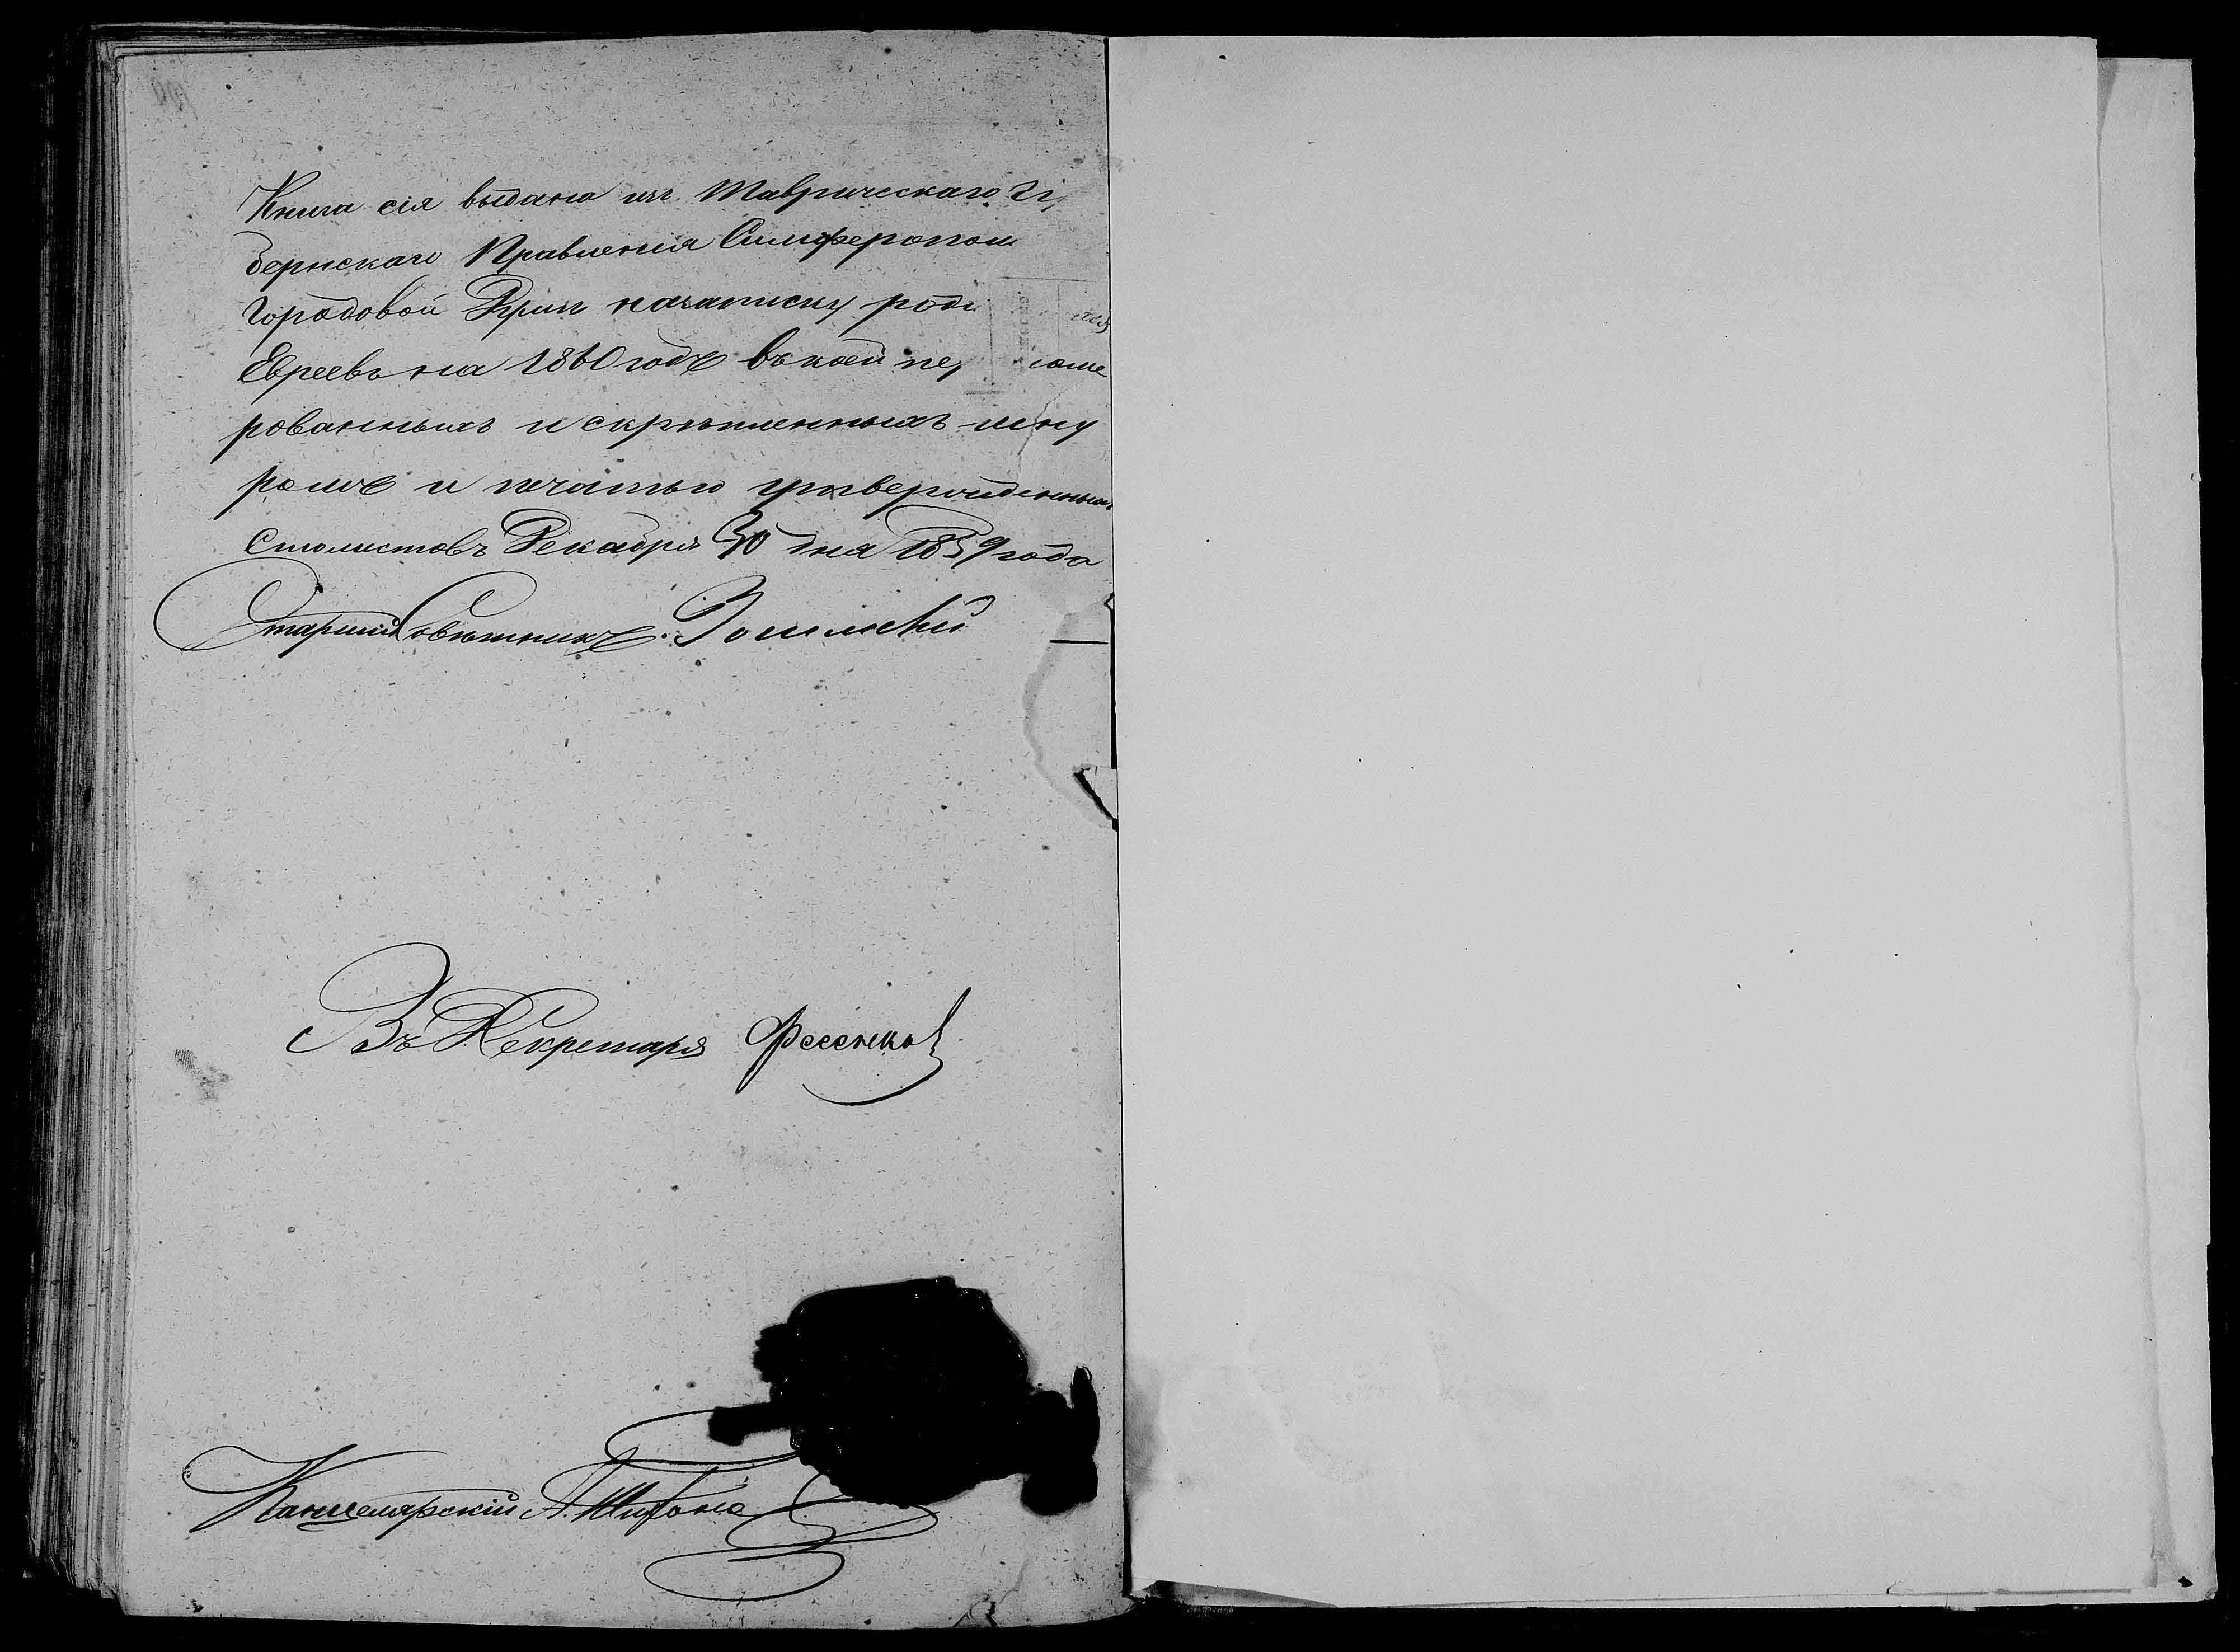 Книга сія выдана изъ Таврическаго Гу
бернскаго Правленія Симферопол
Городовой Думѣ на записку роди
Евреевъ на 1860 годъ въ коей ну
рованныхъ и скрѣпленныхъ шну
ромъ и печатью утвержденныхъ
Сто листовъ Декабря 30 дня 1859 года
Старшій Совѣтникъ
За Секретаря Фесенко
Канцелярскій А.